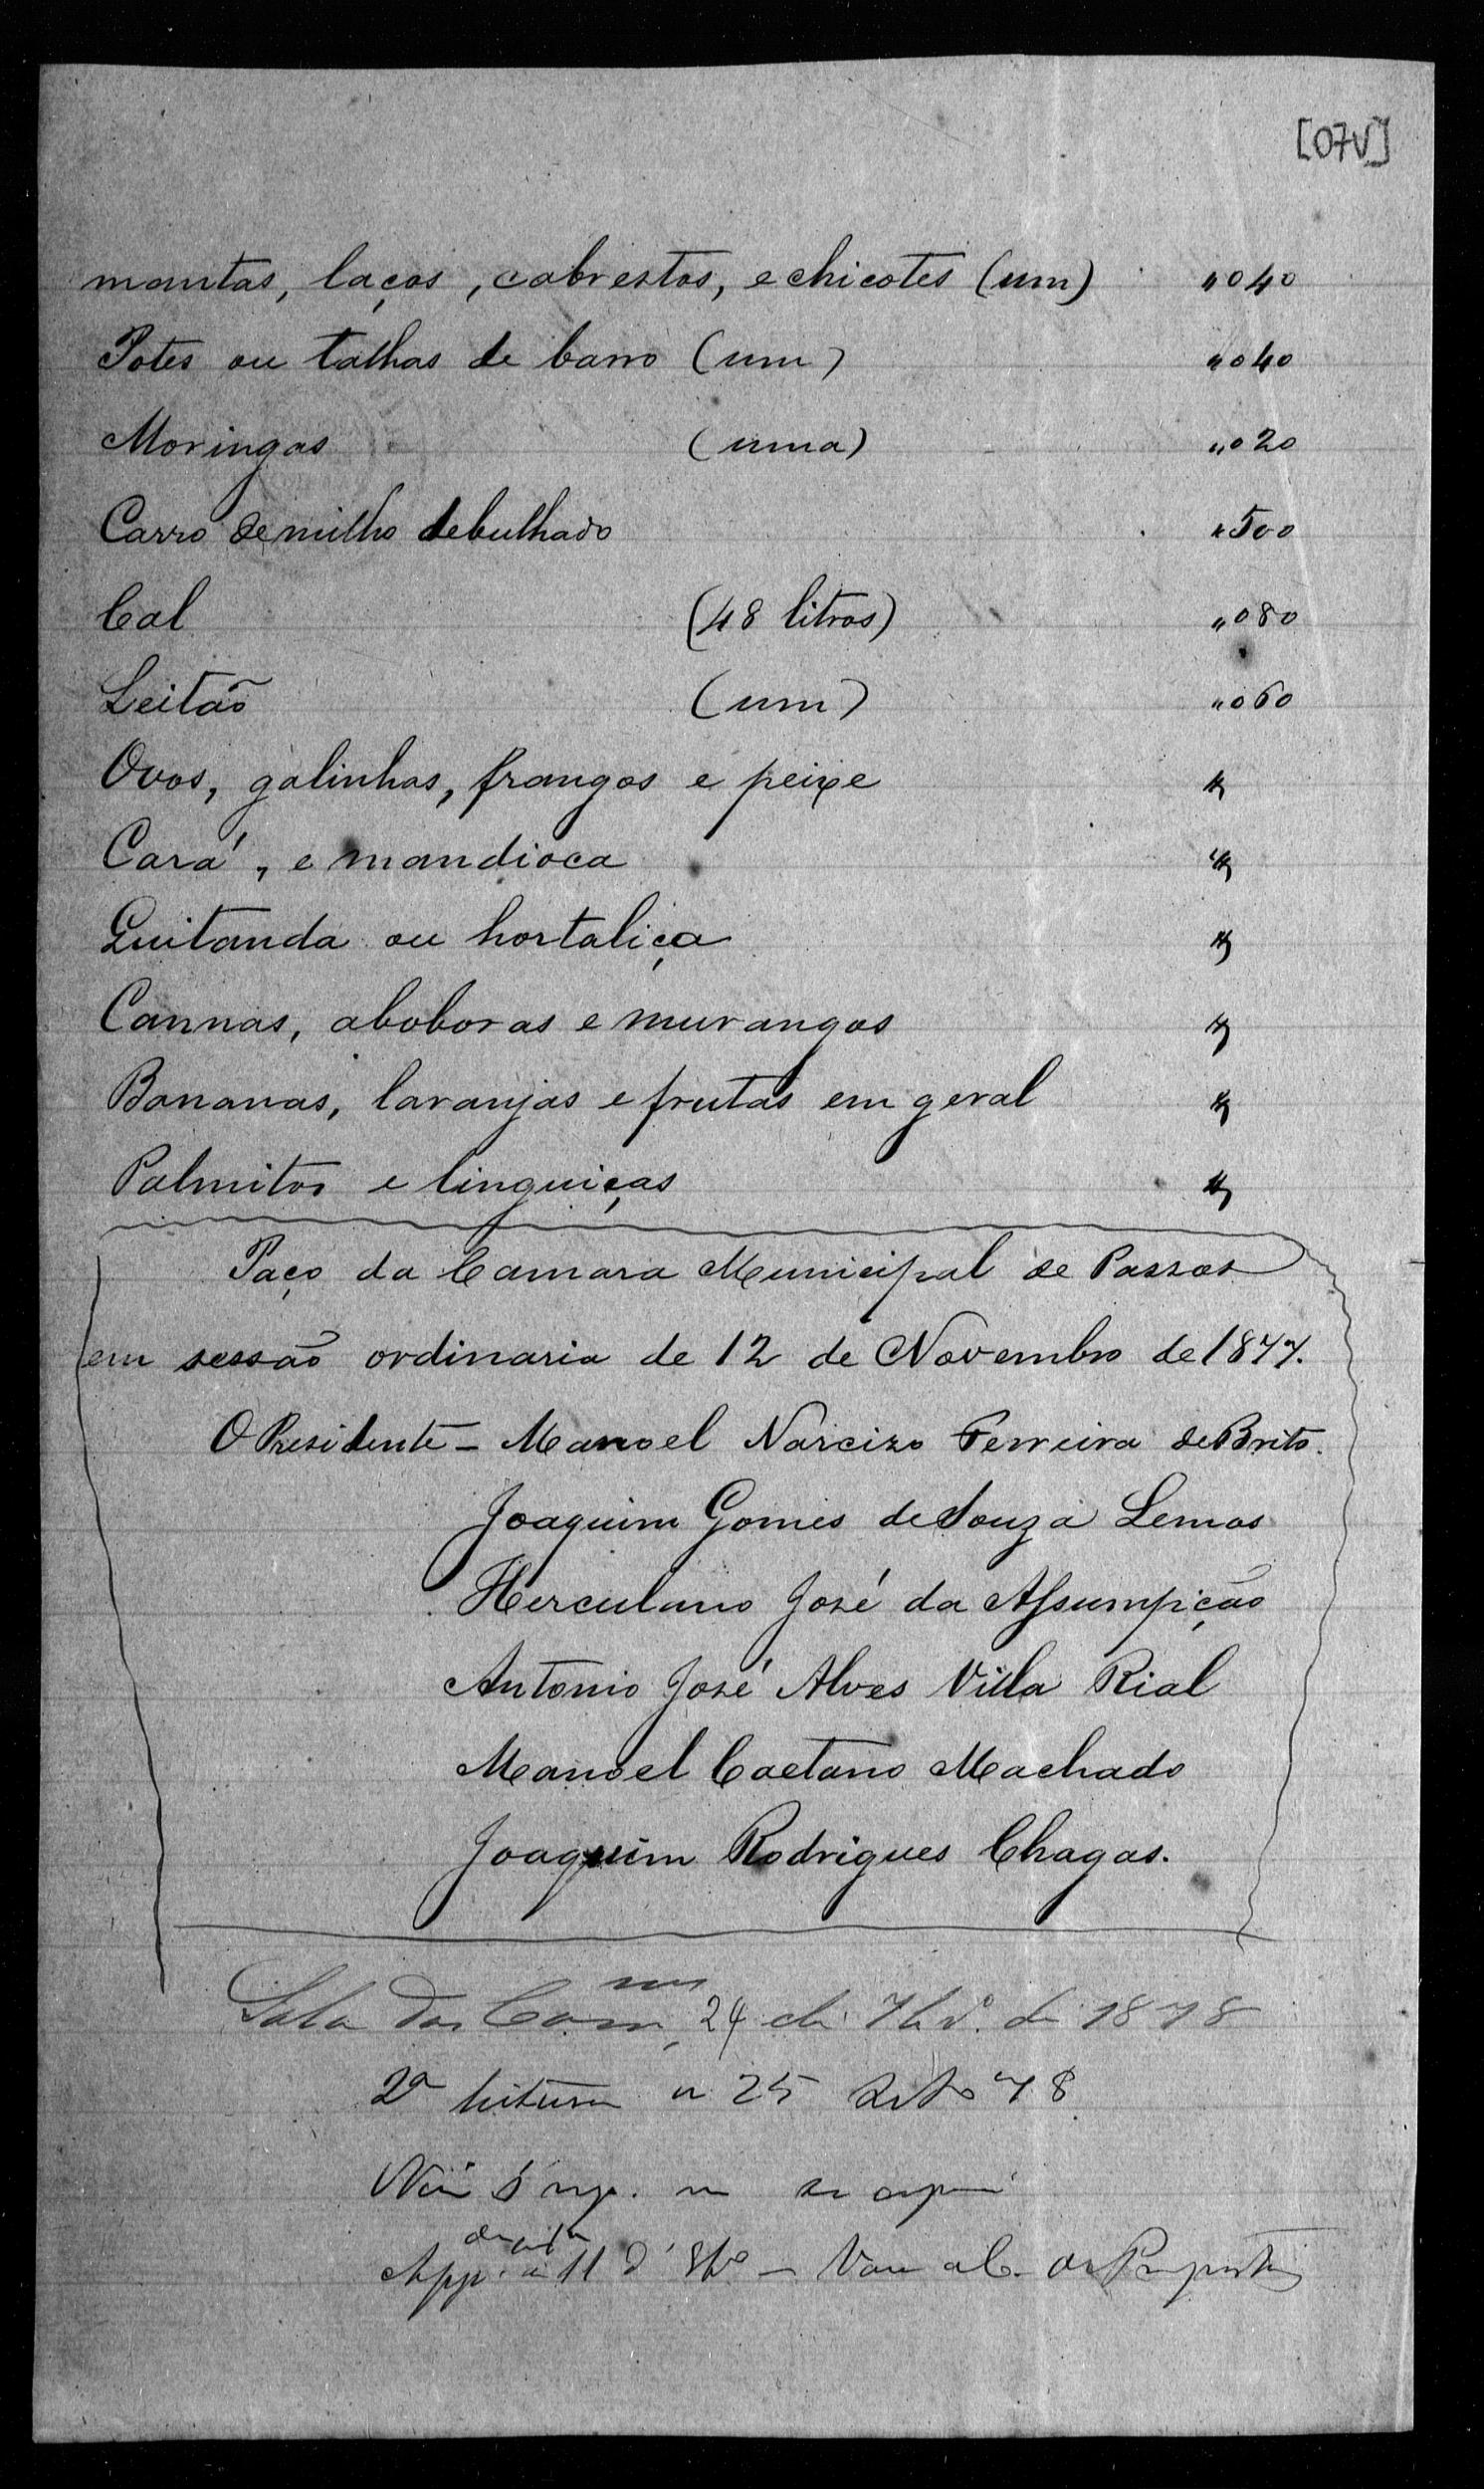 [07V]
mantas, laços, cabrestos, e chicotes (um) "040
Potes ou talhas de barro (um) "040
Moringas (uma) "020
Carro de milho debulhado "500
Cal (48 litros) "080
Leitão (um) "060
Ovos, galinhas, frangos e peixe "
Cará, e mandioca "
Quitanda ou hortaliça "
Cannas, aboboras e murangos "
Bananas, laranjas e frutas em geral "
Palmitos e linguiças "
Paço da Camara Municipal de Passos
em sessão ordinaria de 12 de Novembro de 1877.
O Presidente - Manoel Narcizo Ferreira de Brito.
Joaquim Gomes de Souza Lemos
Herculano José da Assumpição
Antonio José Alves Villa Rial
Manoel Caetano Machado
Joaquim Rodrigues Chagas.
Sala das Com.mes, 24 de 7br.o de 1878
2a leitura a 25 78
App. a 11 d' - Vae a C. de